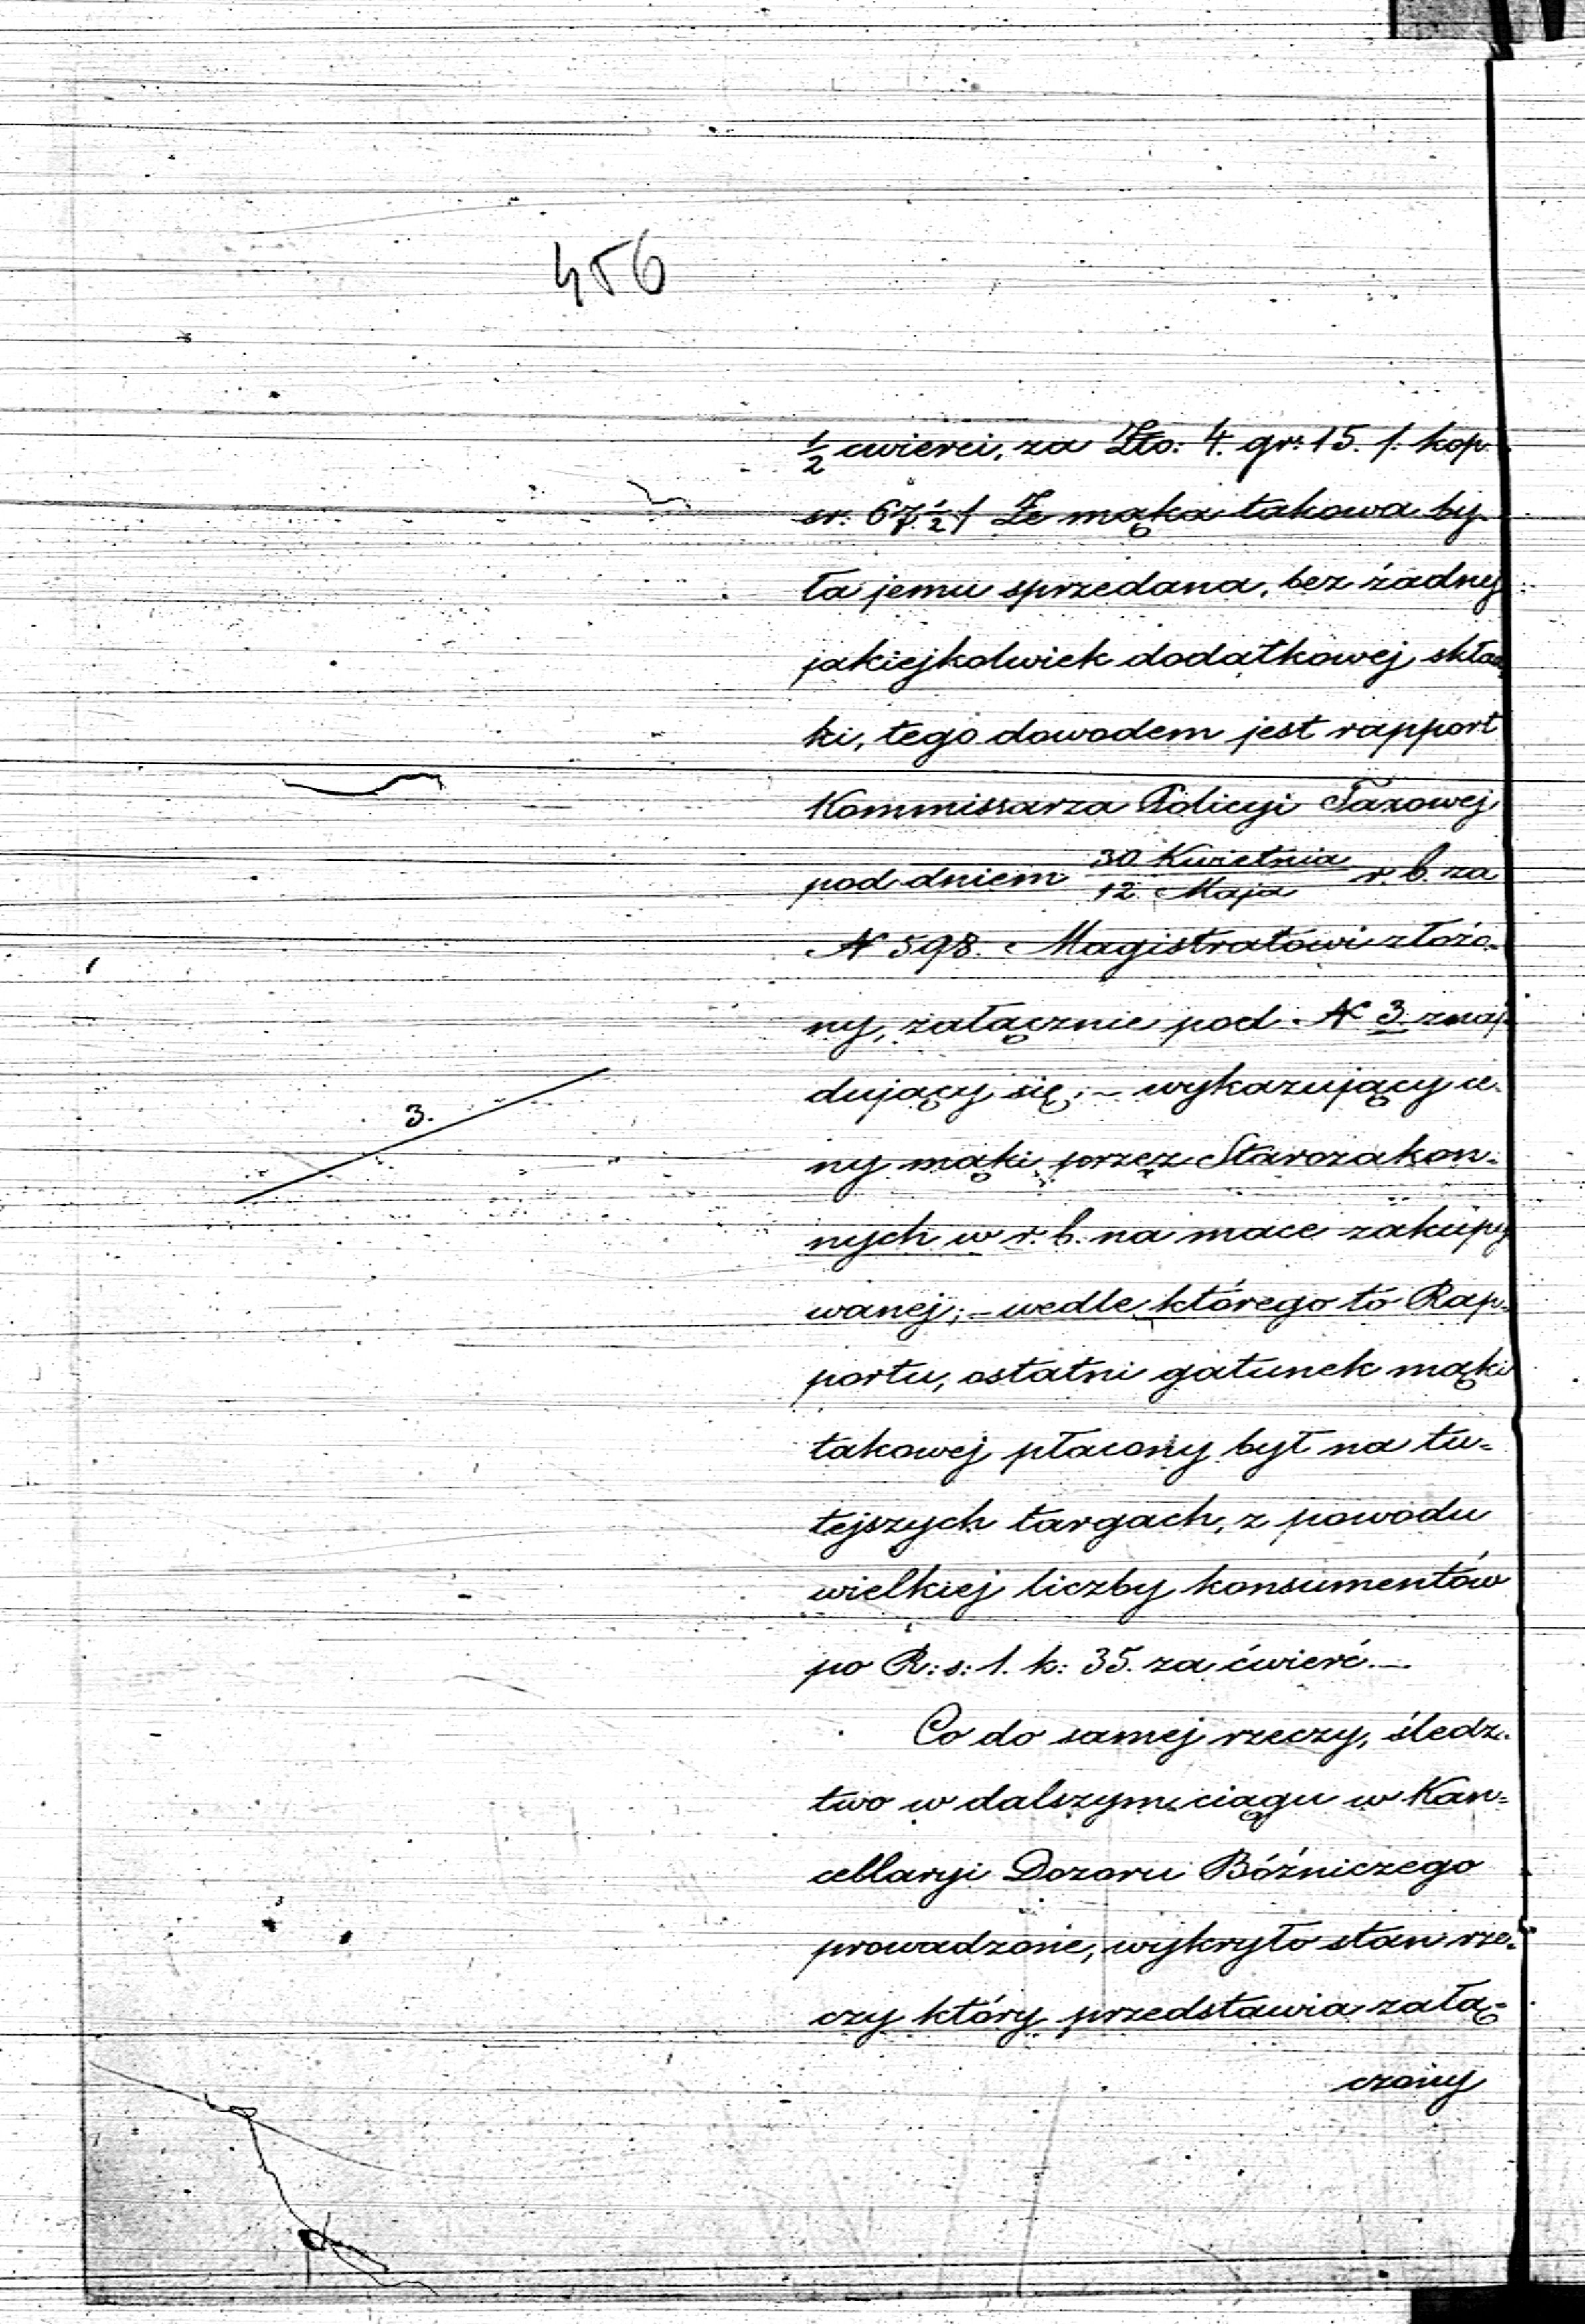 456
½ cwierci, za Zło: 4. gr: 15. /: kop.
sr: 67½ / Że mąka takowa by-
ła jemu sprzedana, bez żadny
jakiejkolwiek dodatkowej skład
ki, tego dowodem jest rapport
Kommissarza Policyi Taxowej
pod dniem 30 Kwietnia / 12 Maja r. b. za
N 598. Magistratowi złożo-
ny, załącznie pod N 3 znaj-
dujący się; – wykazujący ce-
3.
ny mąki przez Starozakon-
nych w r. b. na mace zakupy
wanej; – wedle którego to Rap-
portu, ostatni gatunek mąki
takowej płacony był na tu-
tejszych targach, z powodu
wielkiej liczby konsumentów
po R: s: 1. k: 35. za ćwierć. –
Co do samej rzeczy, śledz-
two w dalszym ciągu w Kan-
cellaryi Dozoru Bóźniczego
prowadzone, wykryło stan rze-
czy który przedstawia załą-
czony